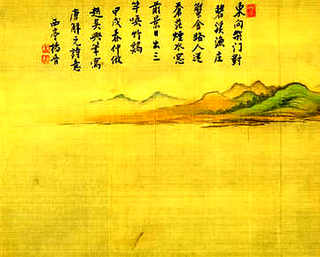 東向衡门對
碧溪漁庄
蟹舍路人迷
蒼茫煙水窓
前景日出三
竿喚竹鷄
甲戌春仲倣
趙吳興筆寫
唐解元詩意
西亭楊晉